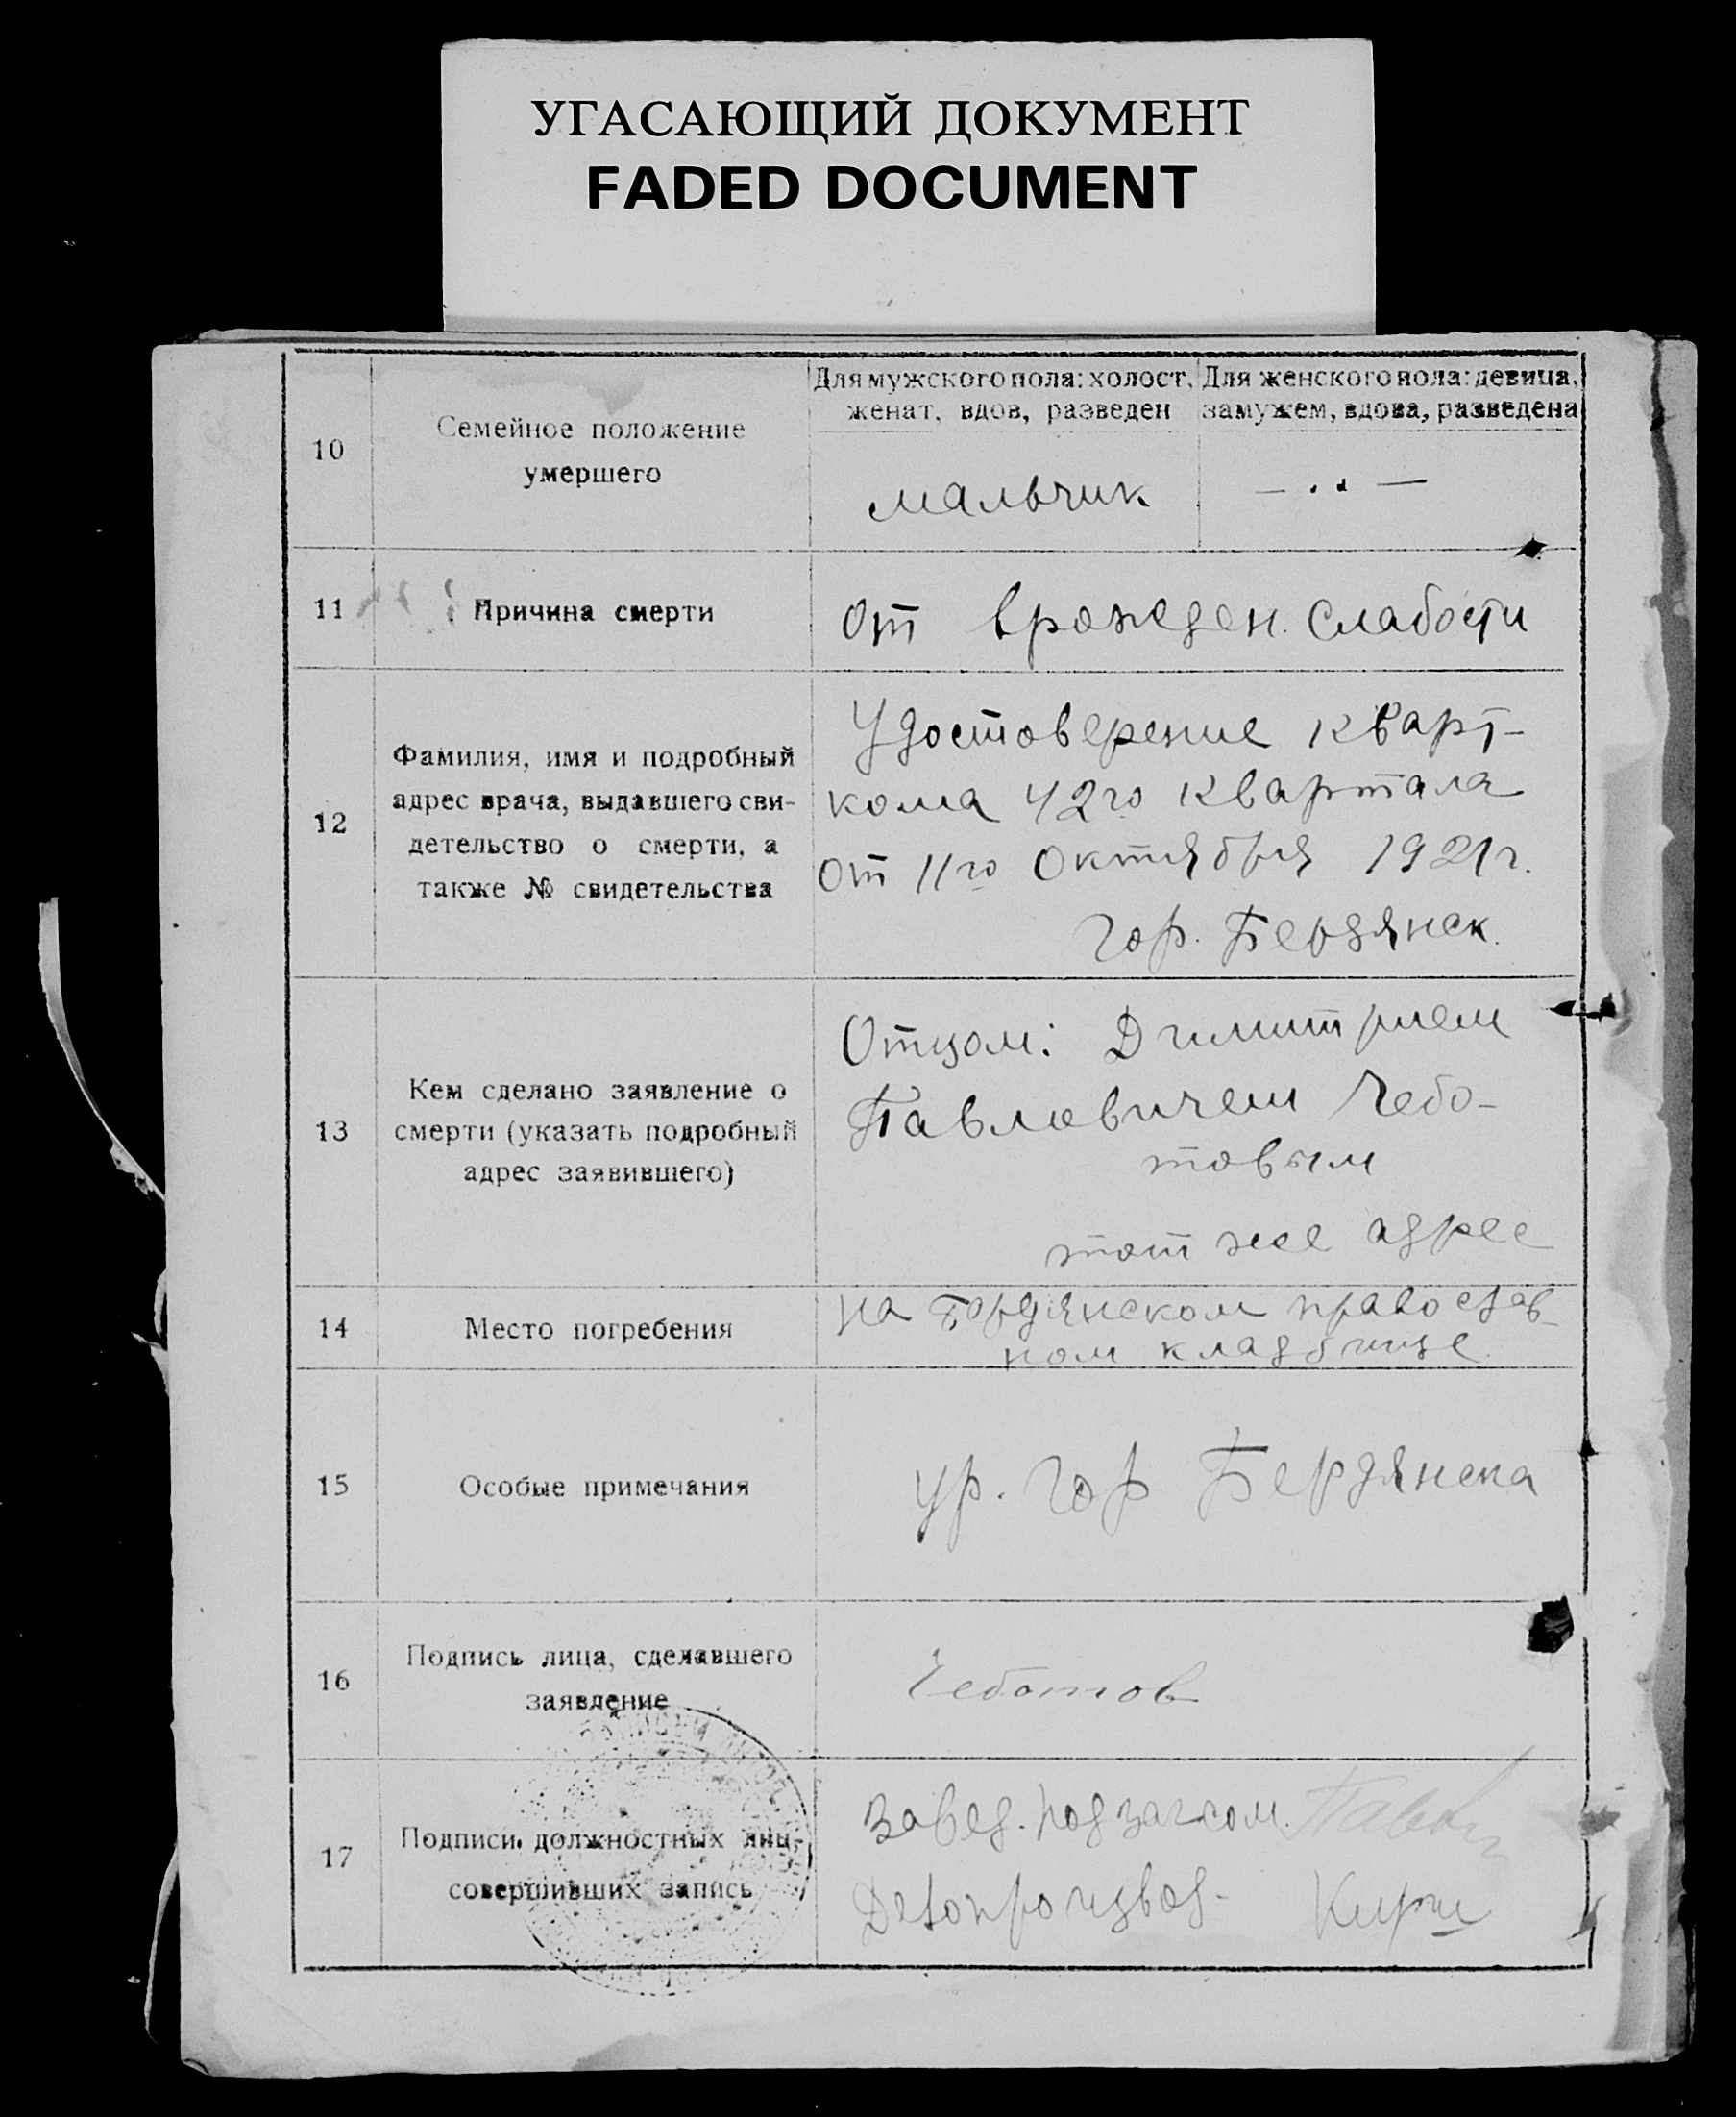 УГАСАЮЩИЙ ДОКУМЕНТ
FADED DOCUMENT
10
Семейное положение
умершего
Для мужского пола: холост,
женат, вдов, разведен
Для женского пола: девица,
замужем, вдова, разведена
мальчик
— „ —
11
Причина смерти
От врожден. слабости
12
Фамилия, имя и подробный
адрес врача, выдавшего сви-
детельство о смерти, а
также № свидетельства
Удостоверение кварт-
кома 42го квартала
От 11го Октября 1921г.
гор. Бердянск.
13
Кем сделано заявление о
смерти (указать подробный
адрес заявившего)
Отцом: Димитрием
Павловичем Чебо-
товым
тот же адрес
14
Место погребения
на Бердянском православ-
ном кладбище.
15
Особые примечания
ур. гор Бердянска
16
Подпись лица, сделавшего
заявление
Чеботов
17
Подписи должностных лиц,
совершивших запись
Завед. подзагсом.
Делопроизвод-